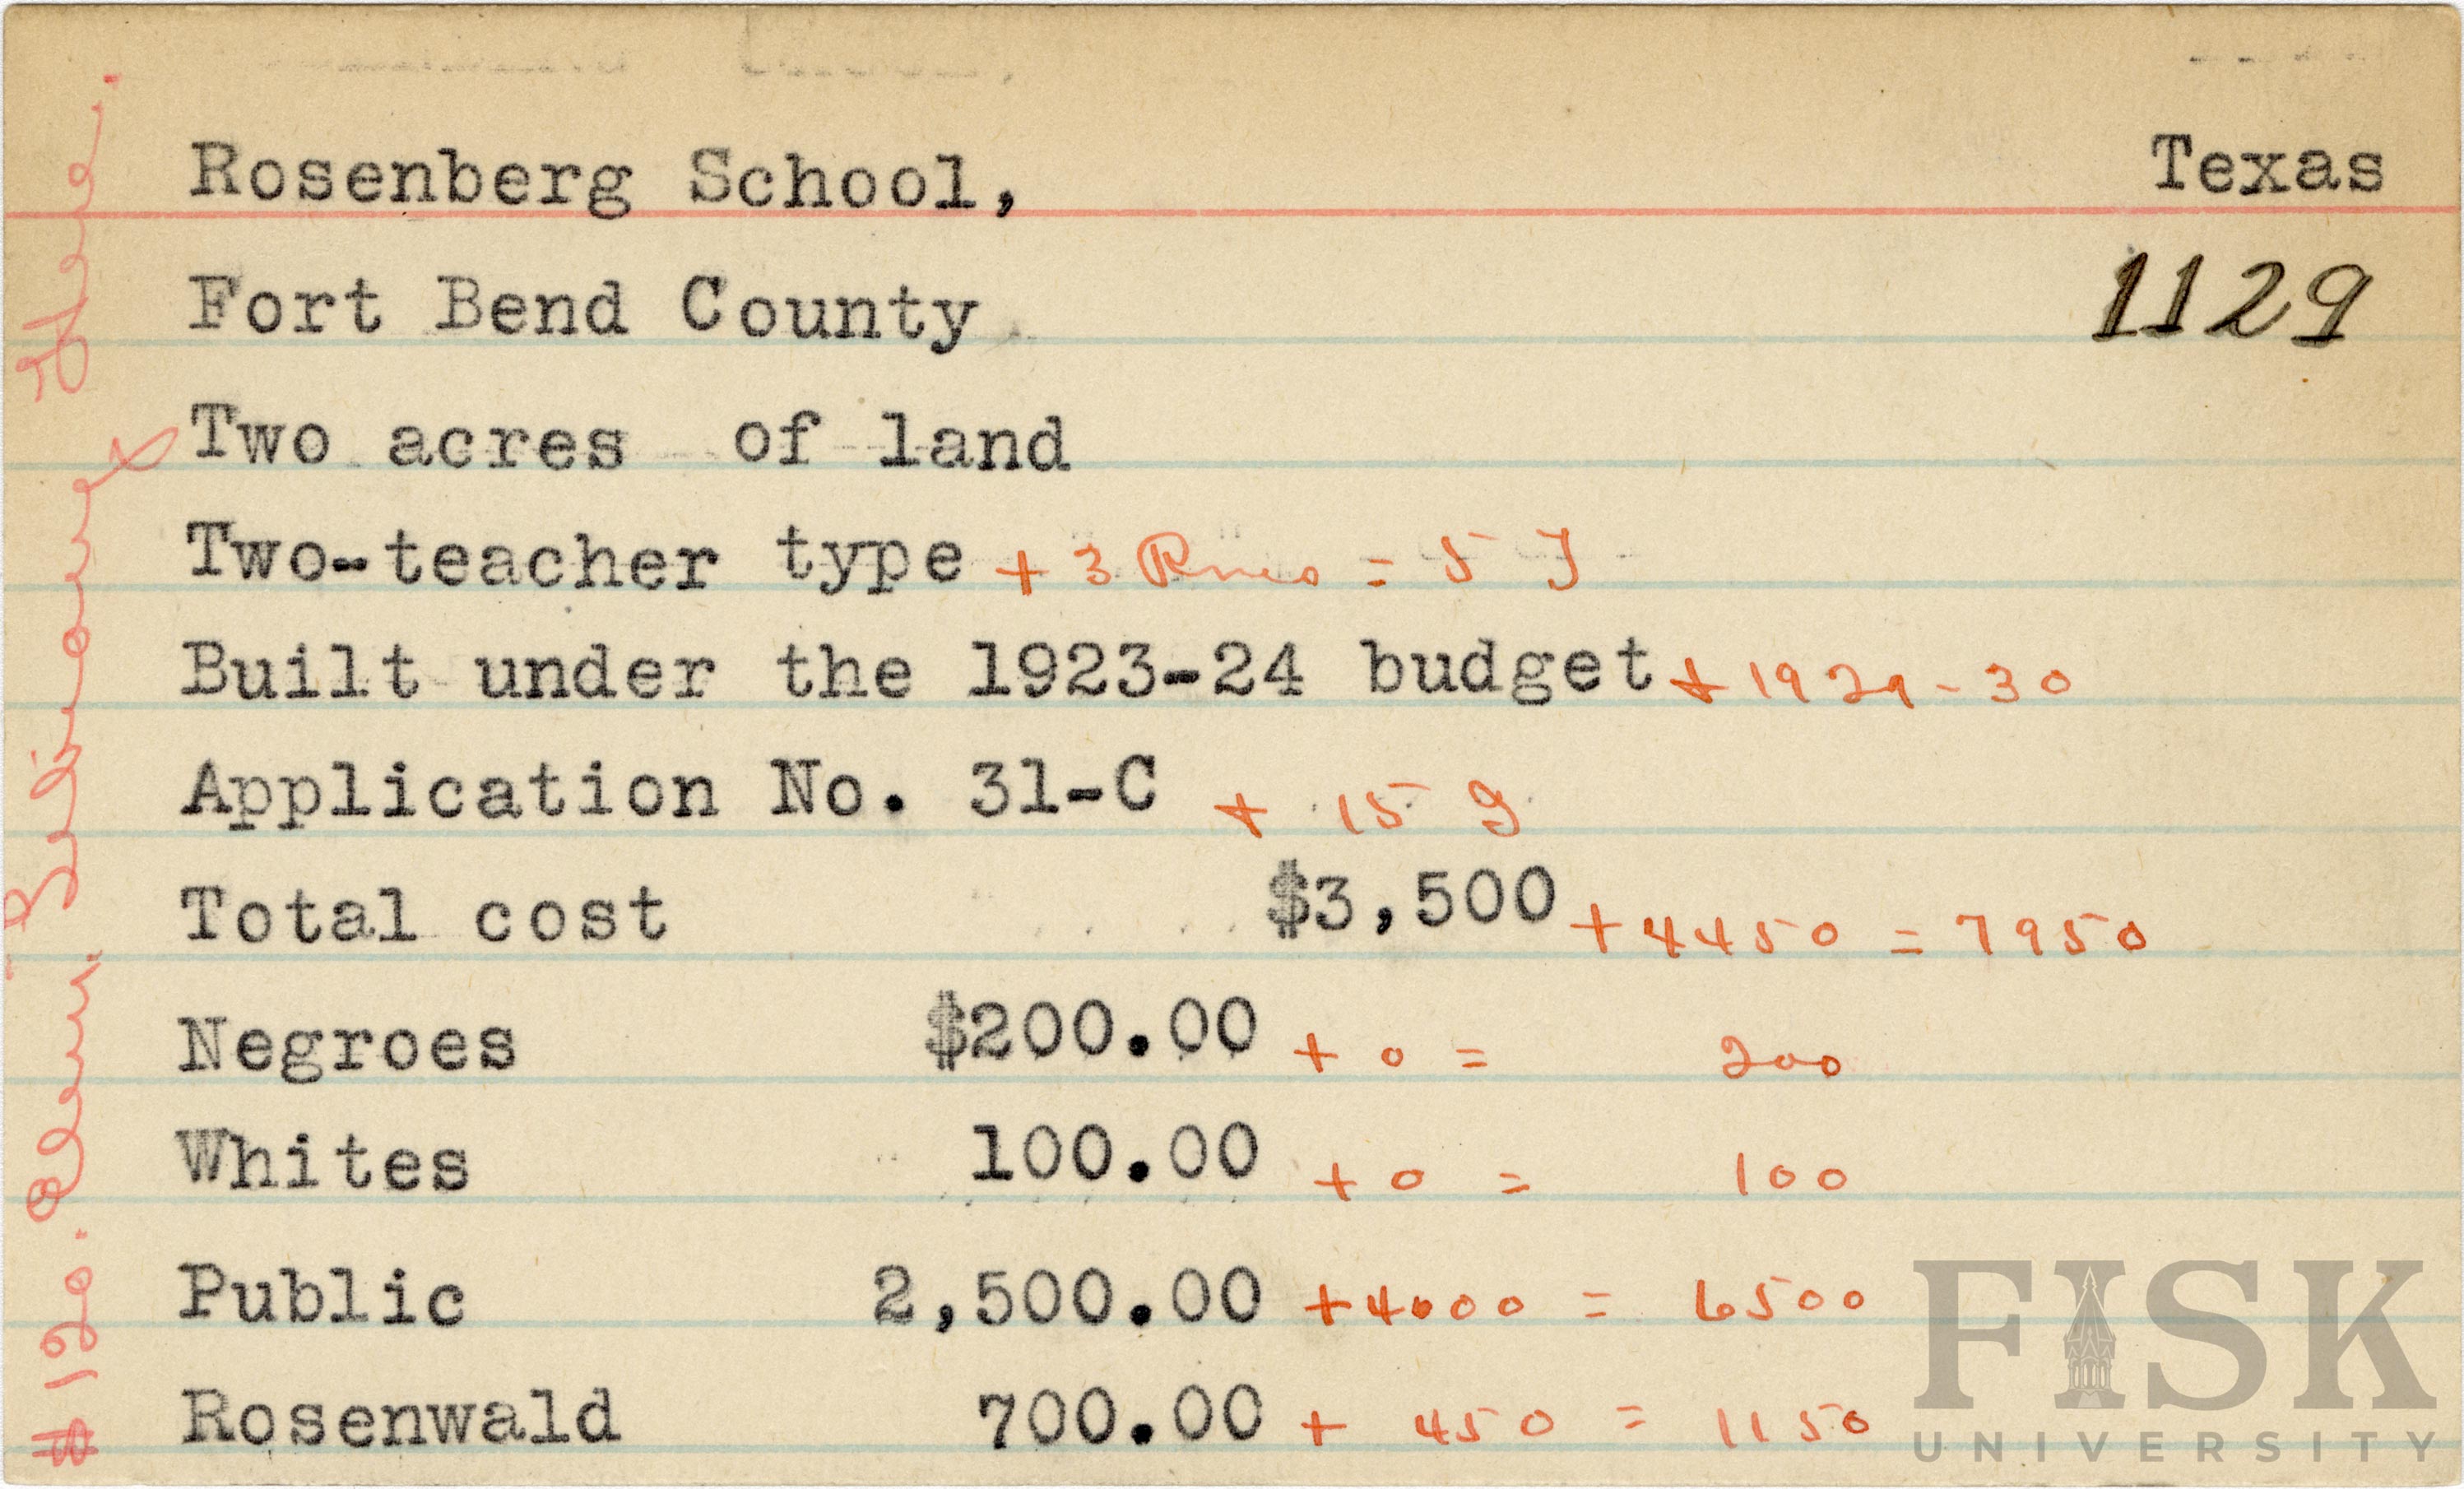 Rosenberg School, Texas
Fort Bend County 1129
Two acres of land
Two-teacher type + 3 Rms = 5 T
Built under the 1923-24 budget + 1929-30
Application No. 31-C + 15 G
Total cost $3,500 + 4450 = 7950
Negroes $200.00 + 0 = 200
Whites 100.00 + 0 = 100
Public 2,500.00 + 4000 = 6500
Rosenwald 700.00 + 450 = 1150
#120. Elem. Library
FISK
UNIVERSITY